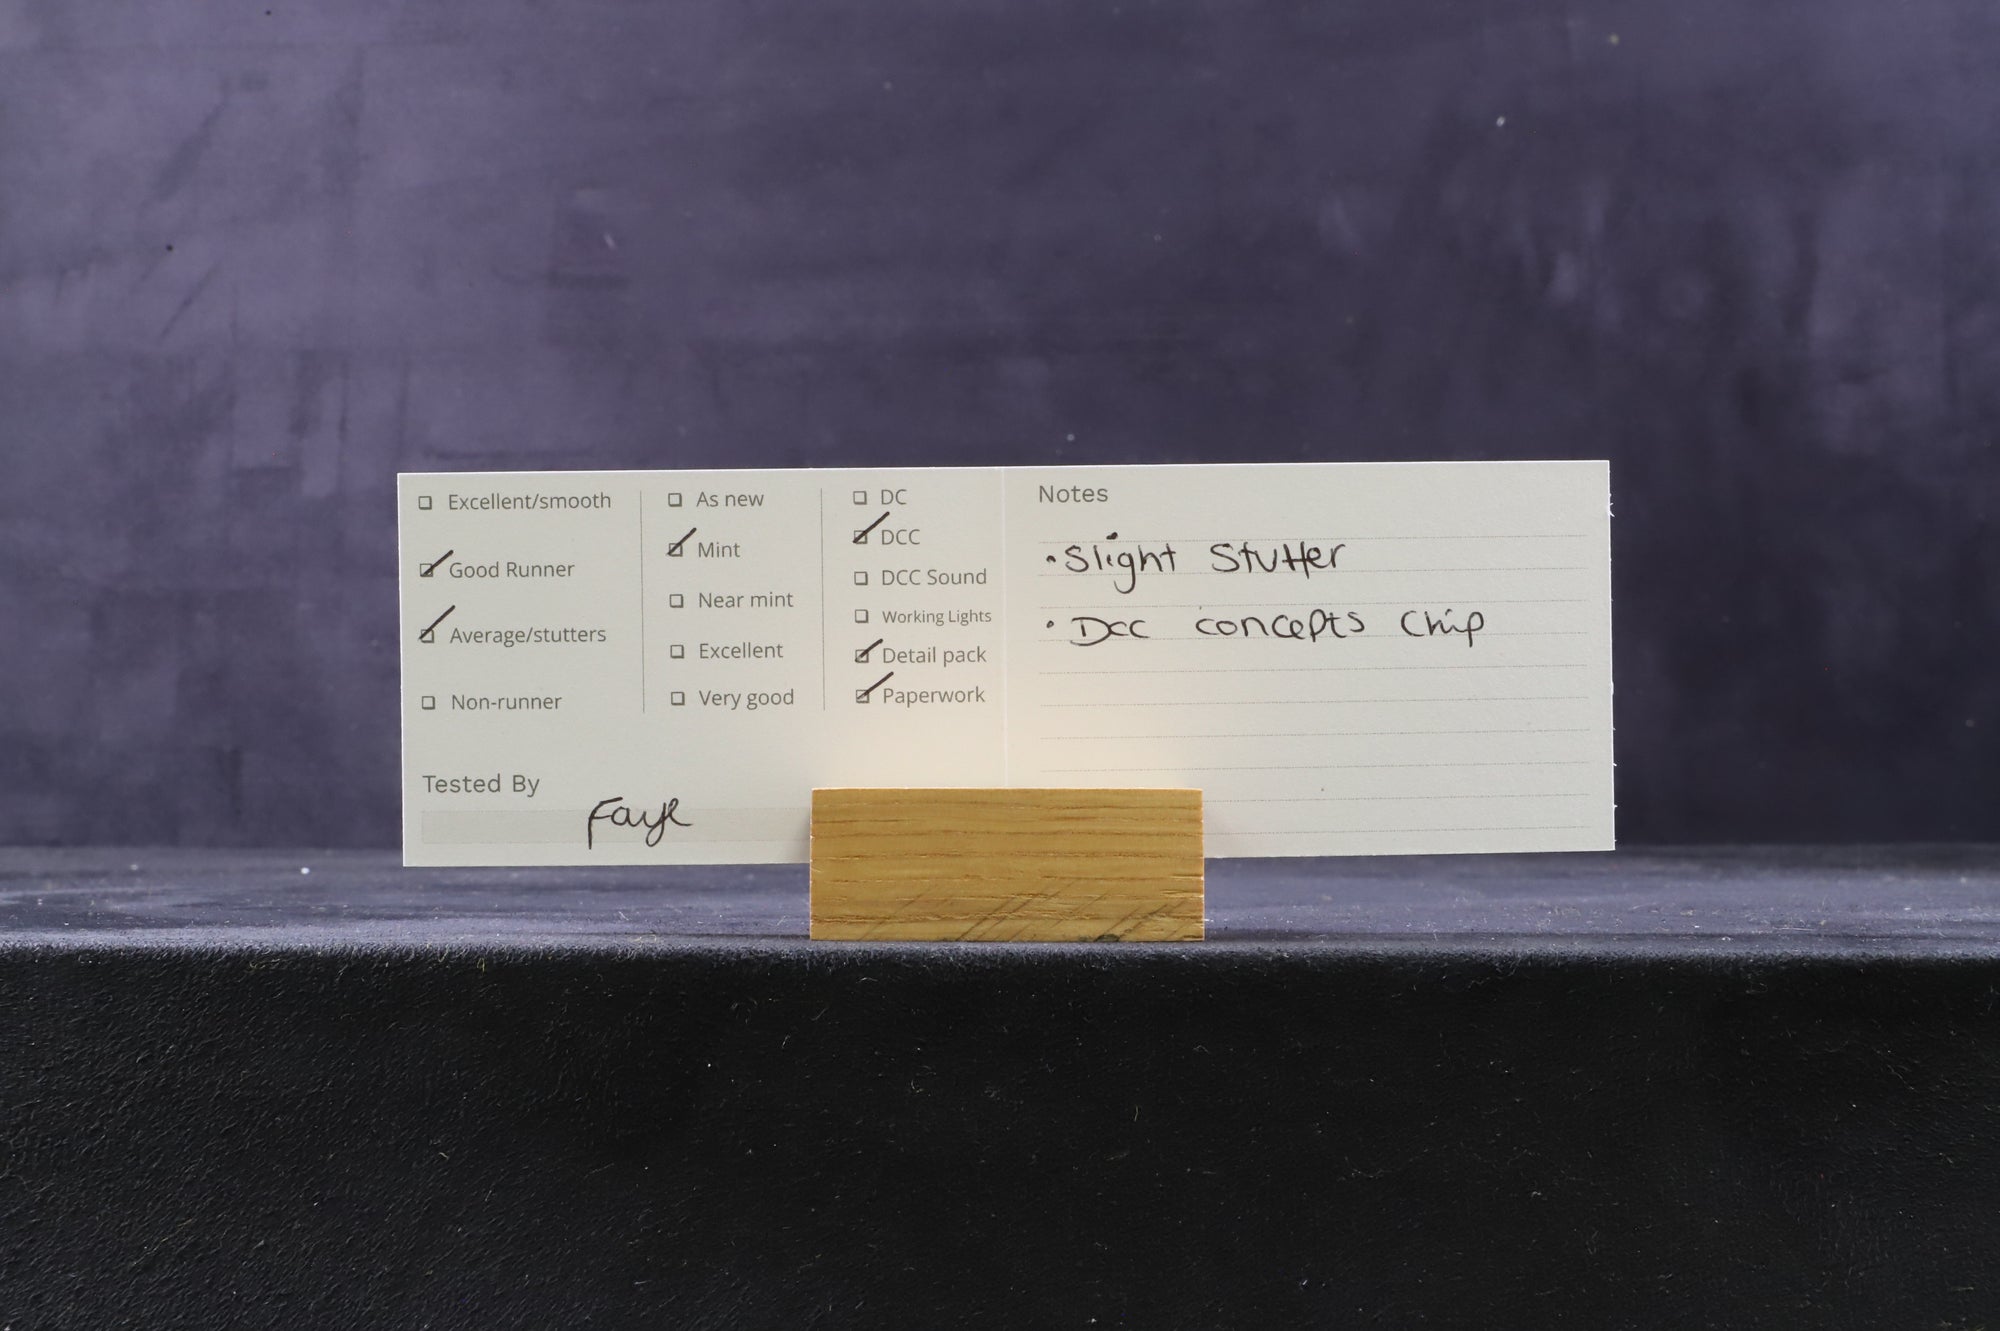 Excellent/smooth
Good Runner
Average/stutters
Non-runner
As new
Mint
Near mint
Excellent
Very good
DC
DCC
DCC Sound
Working Lights
Detail pack
Paperwork
Tested By
Faye
Notes
• Slight Stutter
• Dcc concepts Chip